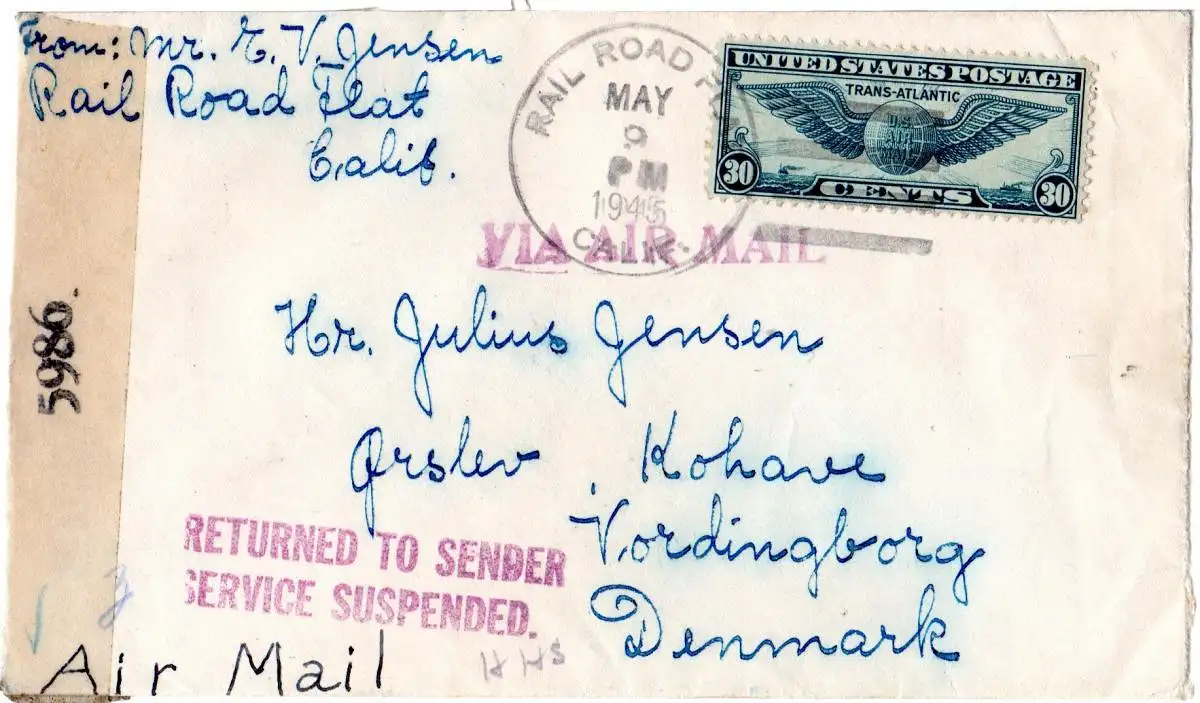 From: Mr. E. V. Jensen
Rail Road Flat
Calif.
RAIL ROAD
MAY
9
PM
1945
CALIF.
UNITED STATES POSTAGE
TRANS-ATLANTIC
30 CENTS 30
VIA AIR MAIL
5986.
Hr. Julius Jensen
Ørslev Kohave
Vordingborg
Denmark
RETURNED TO SENDER
SERVICE SUSPENDED.
Air Mail